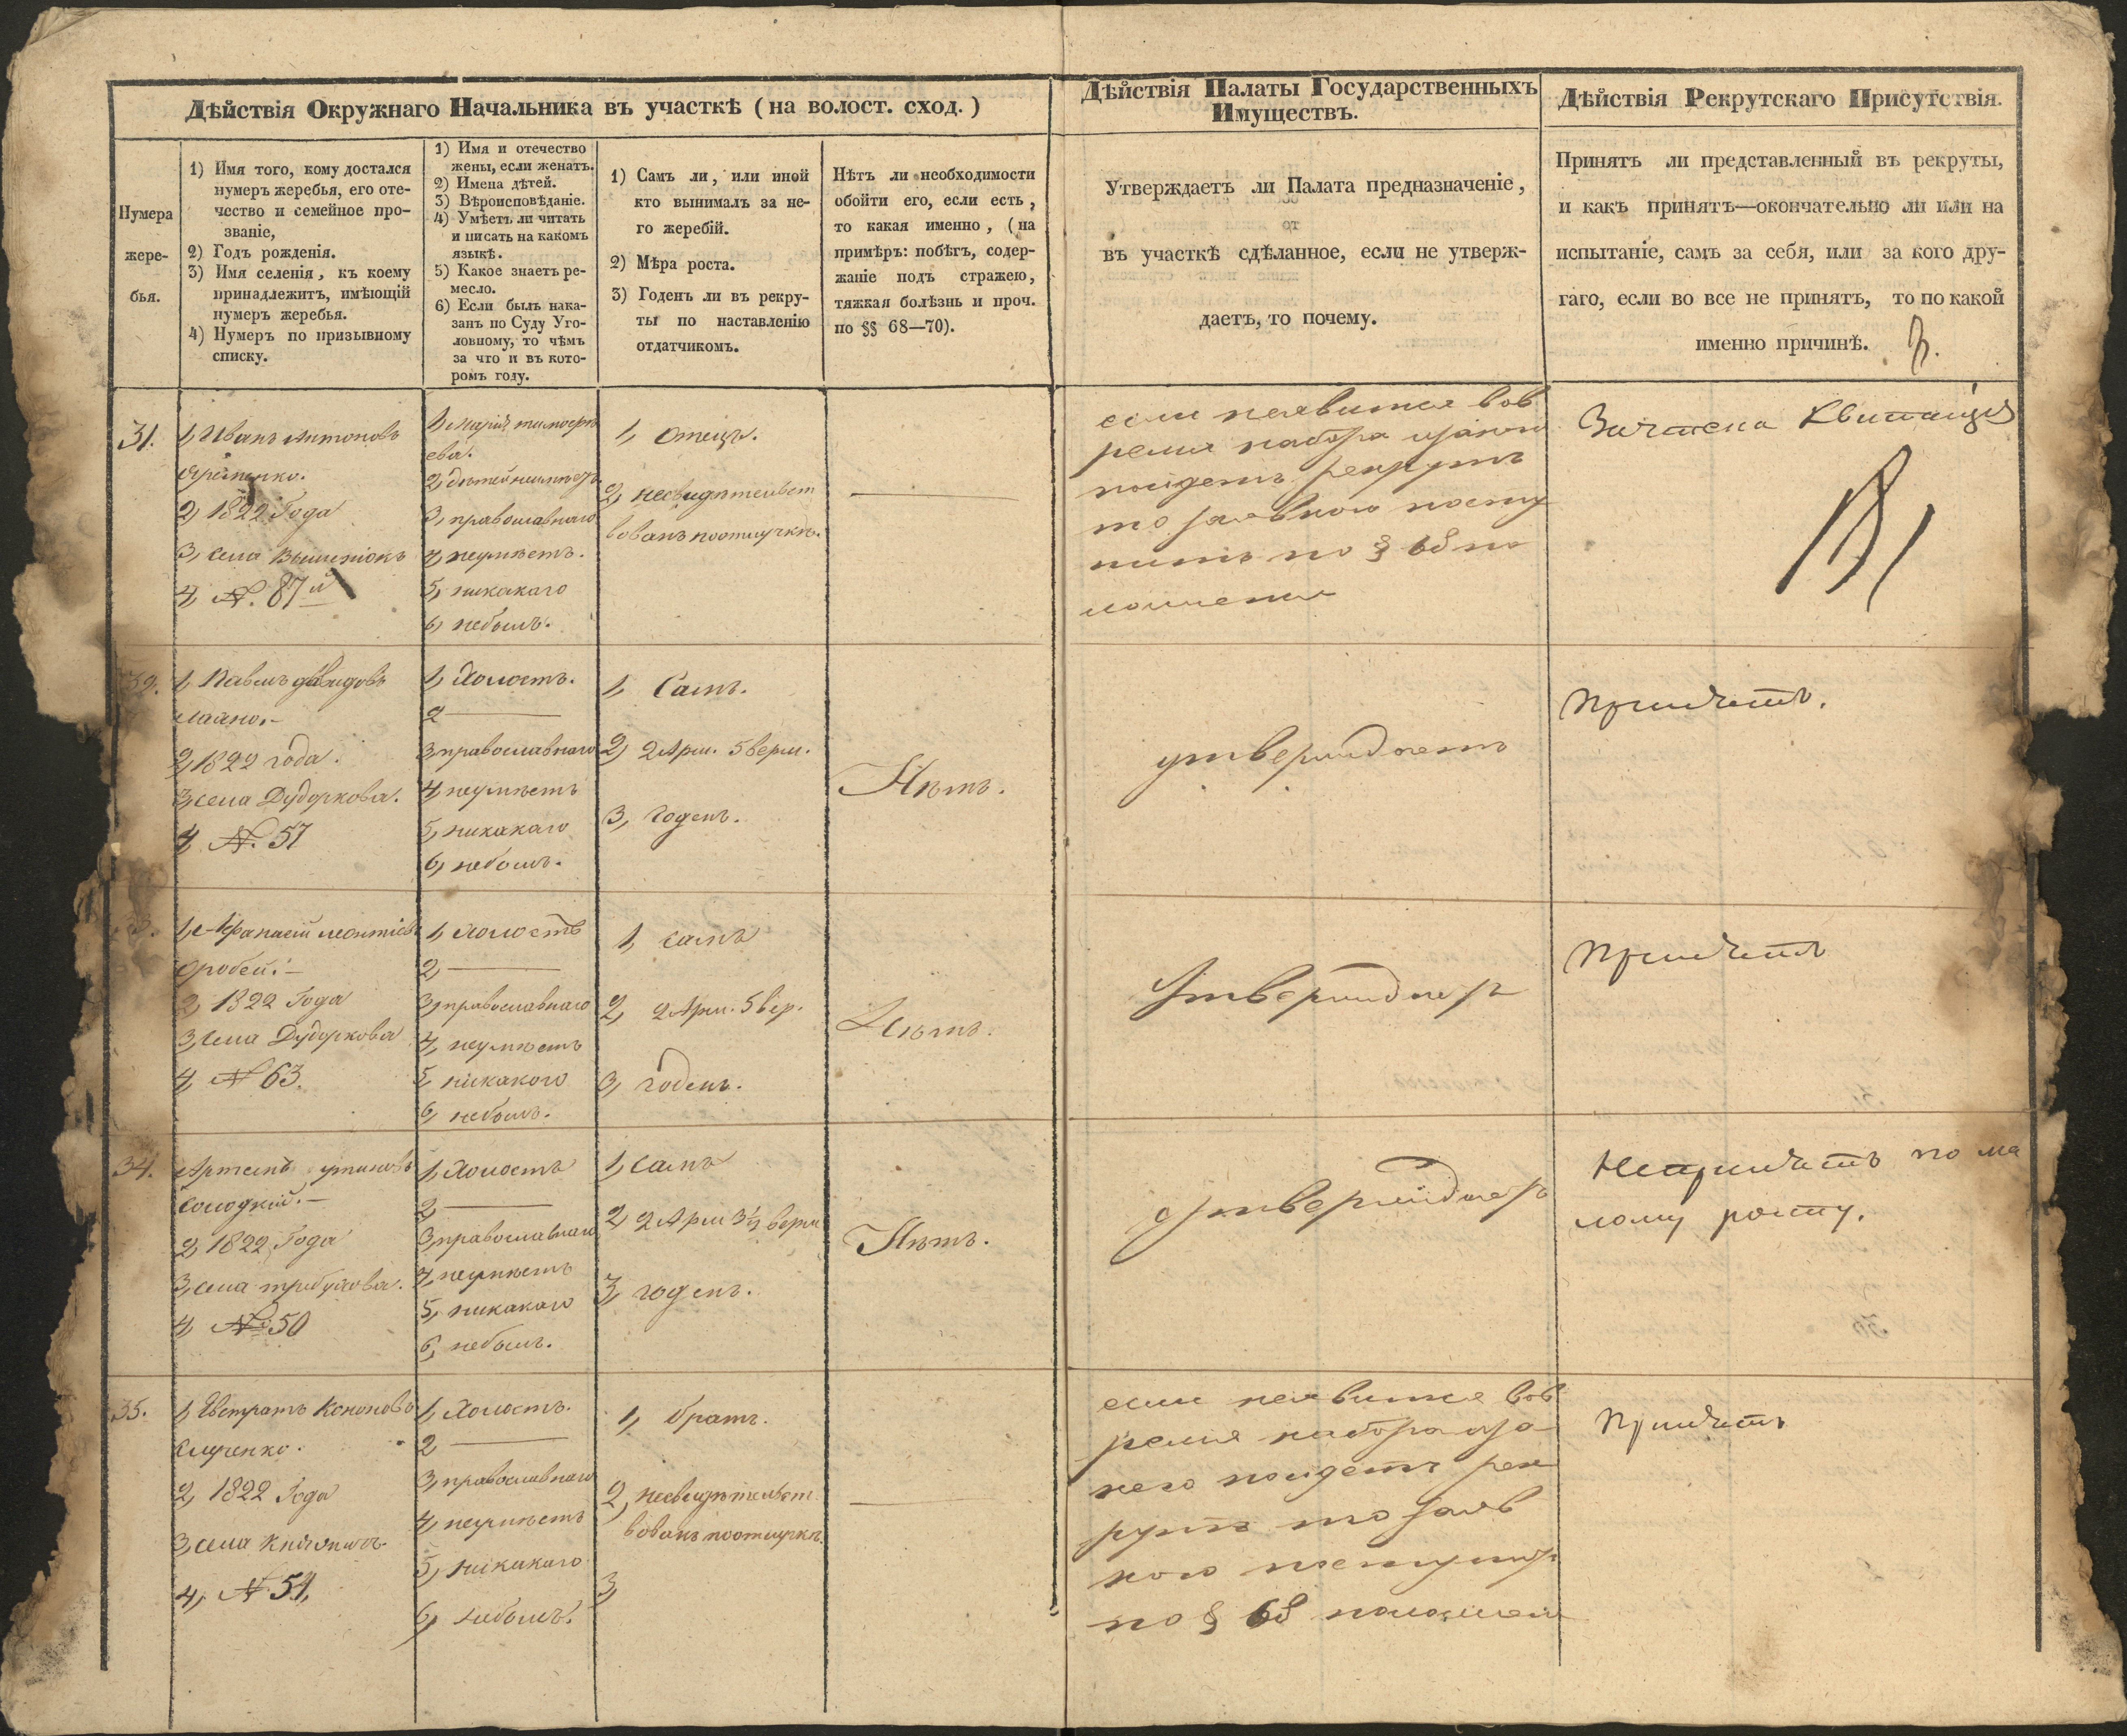 Дѣйствія Окружнаго Начальника въ участкѣ (на волост. сход.)
Дѣйствія Палаты Государственныхъ
Имуществъ.
Дѣйствія Рекрутскаго Присутствія.
Нумера
жере-
бья.
1) Имя того, кому достался
нумеръ жеребья, его оте-
чество и семейное про-
званіе,
2) Годъ рожденія.
3) Имя селенія, къ коему
принадлежитъ, имѣющій
нумеръ жеребья.
4) Нумеръ по призывному
списку.
1) Имя и отечество
жены, если женатъ.
2) Имена дѣтей.
3) Вѣроисповѣданіе.
4) Умѣетъ ли читать
и писать на какомъ
языкѣ.
5) Какое знаетъ ре-
месло.
6) Если былъ нака-
занъ по Суду Уго-
ловному, то чѣмъ
за что и въ кото-
ромъ году.
1) Самъ ли, или иной
кто вынималъ за не-
го жеребій.
2) Мѣра роста.
3) Годенъ ли въ рекру-
ты по наставленію
отдатчикомъ.
Нѣтъ ли необходимости
обойти его, если есть,
то какая именно, (на
примѣръ: побѣгъ, содер-
жаніе подъ стражею,
тяжкая болѣзнь и проч.
по §§ 68—70).
Утверждаетъ ли Палата предназначеніе,
въ участкѣ сдѣланное, если не утверж-
даетъ, то почему.
Принятъ ли представленный въ рекруты,
и какъ принятъ—окончательно ли или на
испытаніе, самъ за себя, или за кого дру-
гаго, если во все не принятъ, то по какой
именно причинѣ.
31.
1, Иванъ Антоновъ
2, 1822 Года
3, села
4, №. 87й
ева.
2, дѣтей неимѣетъ
3, православнаго
4, неумѣетъ.
5, никакаго
6, небылъ.
1, Отецъ.
2, несвидѣтельст
вованъ поотлучкѣ.
если неявится вов
ремя набора
пойдетъ рекрутъ
то заявного посту
пить по § 68 по
ложенія
Зачтена Квитанція
32.
1, Павелъ давидовъ
2, 1822 года.
3, села Дударкова.
4, №. 57
1, Холостъ.
2
3, православнаго
4, неумѣетъ
5, никакаго
6, небылъ.
1, Самъ.
2, 2 Арш. 5 верш.
3, годенъ.
Нѣтъ.
утверждаетъ
Принятъ.
33.
1, Афанасій леонтіевъ
2, 1822 Года
3, Села Дударкова
4, № 63.
1, Холостъ
2,
3, православнаго
4, неумѣетъ
5, никакого
6, небылъ.
1, самъ
2, 2 Арш. 5 вер.
3, годенъ.
Нѣтъ.
Утверждаетъ
Принятъ
34.
Артемъ
2, 1822 Года
3, села
4, № 50
1, Холостъ
2,
3, православнаго
4, неумѣетъ
5, никакаго
6, небылъ.
1, самъ
2, 2 Арш 3 1/2 верш
3, годенъ.
Нѣтъ.
Утверждаетъ
Непринятъ по ма
лому росту.
35.
1, Евстратъ Кононовъ
2, 1822 Года
3, села
4, № 54,
1, Холостъ.
2
3, православнаго
4, неумѣетъ
5, никакаго
6, небылъ.
1, братъ.
2, несвидѣтельст
вованъ поотлучкѣ.
3,
если неявится вов
ремя набора а за
него пойдетъ рек
рутъ то заяв
ного поступить
по § 68 положенія
Принятъ